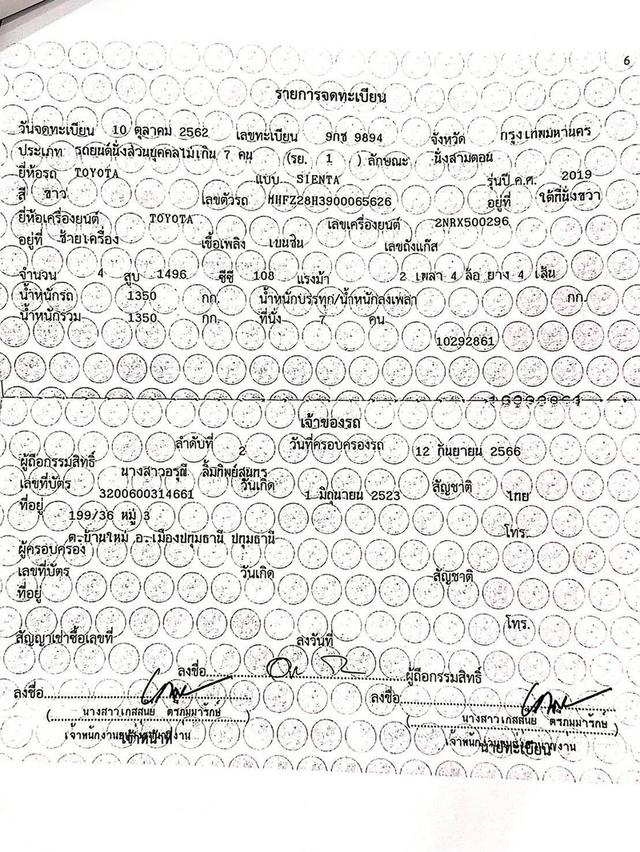 6
รายการจดทะเบียน
วันจดทะเบียน 10 ตุลาคม 2562 เลขทะเบียน 9กช 9894 จังหวัด กรุงเทพมหานคร
ประเภท รถยนต์นั่งส่วนบุคคลไม่เกิน 7 คน (รย. 1 ) ลักษณะ นั่งสามตอน
ยี่ห้อรถ TOYOTA แบบ SIENTA รุ่นปี ค.ศ. 2019
สี ขาว เลขตัวรถ MHFZ28H3900065626 อยู่ที่ ใต้ที่นั่งขวา
ยี่ห้อเครื่องยนต์ TOYOTA เลขเครื่องยนต์ 2NRX500296
อยู่ที่ ซ้ายเครื่อง เชื้อเพลิง เบนซิน เลขถังแก๊ส
จำนวน 4 สูบ 1496 ซีซี 108 แรงม้า 2 เพลา 4 ล้อ ยาง 4 เส้น
น้ำหนักรถ 1350 กก. น้ำหนักบรรทุก/น้ำหนักลงเพลา กก.
น้ำหนักรวม 1350 กก. ที่นั่ง 7 คน
10292861
เจ้าของรถ
ลำดับที่ 2 วันที่ครอบครองรถ 12 กันยายน 2566
ผู้ถือกรรมสิทธิ์ นางสาวอรุณี
เลขที่บัตร 3200600314661 วันเกิด 1 มิถุนายน 2523 สัญชาติ ไทย
ที่อยู่ 199/36 หมู่ 3
ต.บ้านใหม่ อ.เมืองปทุมธานี ปทุมธานี โทร.
ผู้ครอบครอง
เลขที่บัตร วันเกิด สัญชาติ
ที่อยู่
โทร.
สัญญาเช่าซื้อเลขที่ ลงวันที่
ลงชื่อ ผู้ถือกรรมสิทธิ์
ลงชื่อ ลงชื่อ
นางสาวเกสสนีย์ นางสาวเกสสนีย์
เจ้าหน้าที่ นายทะเบียน